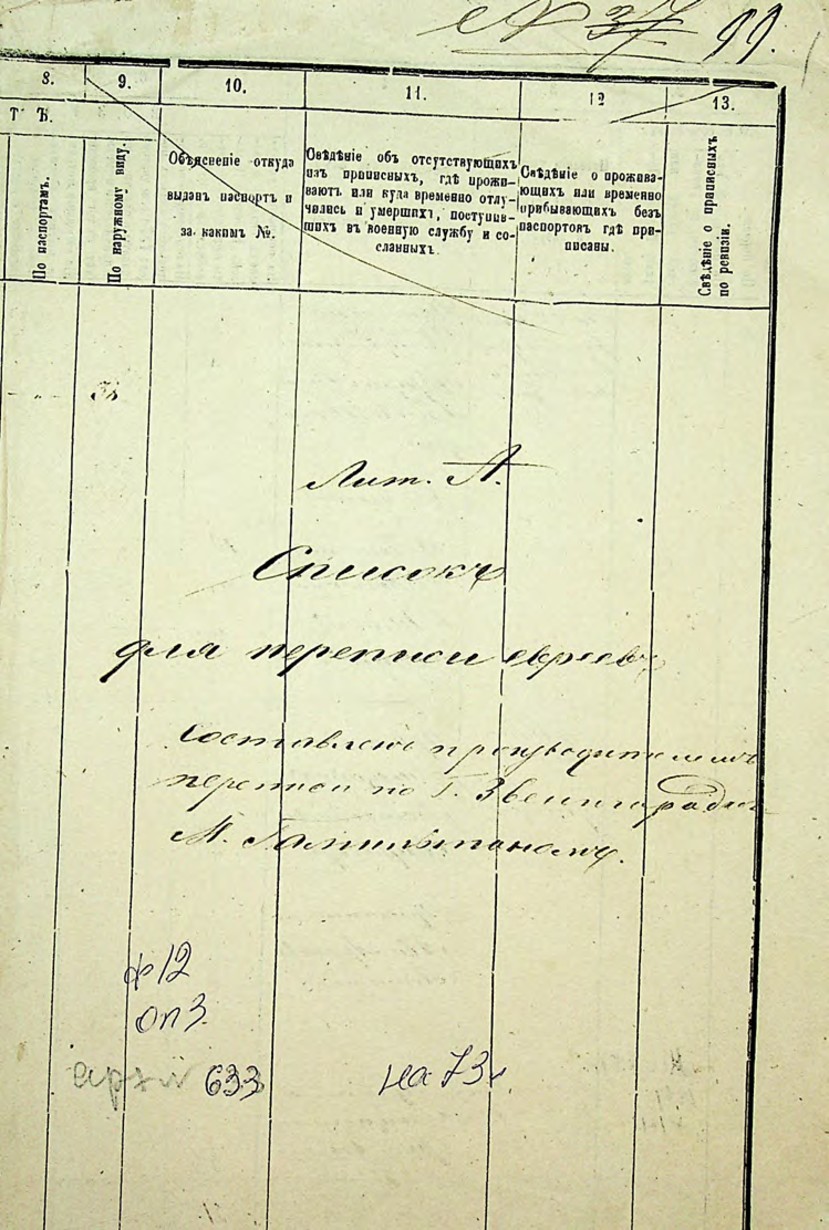 № 37 99.
8. 9. 10. 11. 12 13.
Т Ъ.
По паспортамъ.
По наружному виду.
Объясненіе откуда
выданъ паспортъ и
за какимъ №.
Свѣдѣніе объ отсутствующихъ
изъ приписныхъ, гдѣ прожи-
ваютъ или куда временно отлу-
чились и умершихъ, поступив-
шихъ въ военную службу и со-
сланныхъ.
Свѣдѣніе о прожива-
ющихъ или временно
прибывающихъ безъ
паспортовъ гдѣ при-
писаны.
Свѣдѣніе о приписныхъ
по ревизіи.
38
Лит. А.
Списокъ
для переписи евреевъ
составленъ производителемъ
переписи по г. Звенигородкѣ
М.
ф 12
оп 3.
арх 633 на 73 л